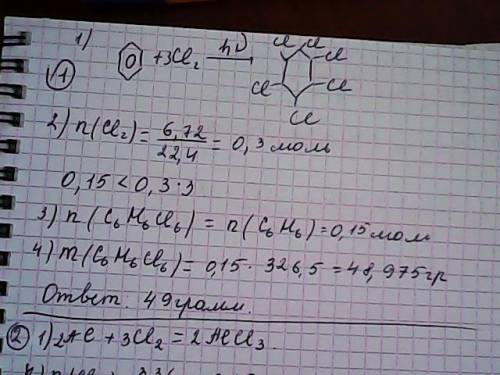 1)
Cl Cl Cl
√1 +3Cl₂ hν Cl Cl
Cl
2) n(Cl₂) = 6,72/22,4 = 0,3 моль
0,15 < 0,3·3
3) n(C₆H₆Cl₆) = n(C₆H₆) = 0,15 моль
4) m(C₆H₆Cl₆) = 0,15 · 326,5 = 48,975 гр
Ответ: 49 грамм.
② 1) 2Al + 3Cl₂ = 2AlCl₃.